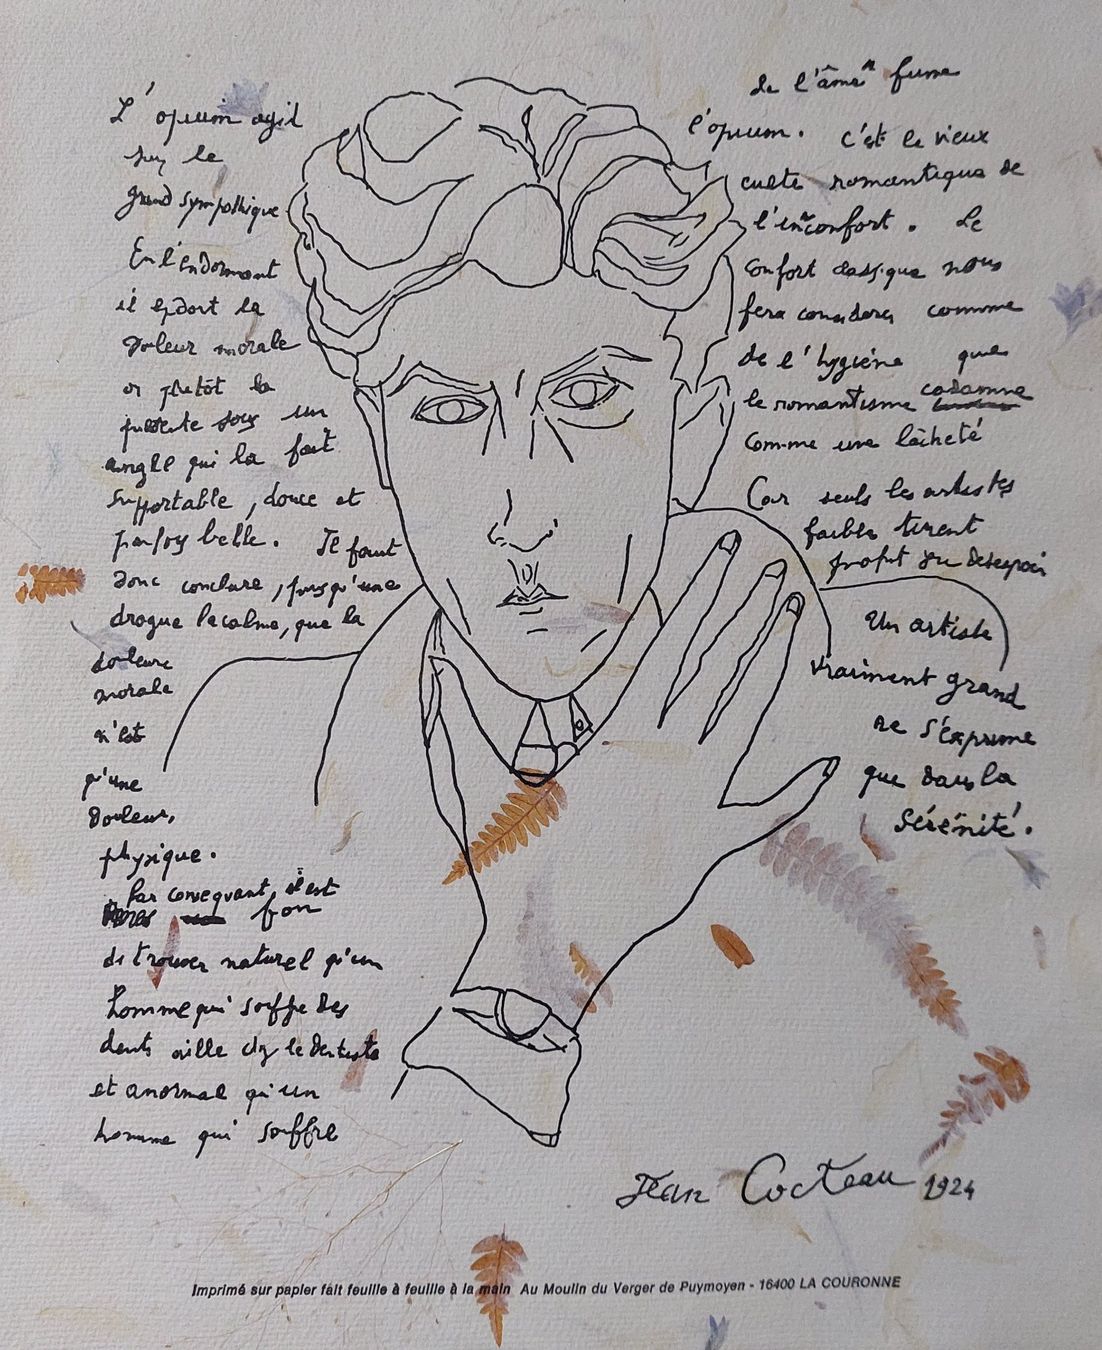 L'opium agit
sur le
grand sympathique
En l'endormant
il endort la
douleur morale
ou plutôt la
présente sous un
angle qui la fait
supportable, douce et
parfois belle. Il faut
donc conclure, puisqu'une
drogue la calme, que la
douleur
morale
n'est
qu'une
douleur
physique.
Par conséquant, il est
bon
de trouver naturel qu'un
homme qui souffre des
dents aille chez le dentiste
et anormal qu'un
homme qui souffre
de l'âme" fume
l'opium. C'est le vieux
culte romantique de
l'inconfort. Le
confort classique nous
fera considerer comme
de l'hygiène que
le romantisme condamne
comme une lâcheté
Car seuls les artistes
faibles tirent
profit du desespoir
Un artiste
vraiment grand
ne s'exprime
que dans la
sérénité.
Jean Cocteau 1924
Imprimé sur papier fait feuille à feuille à la main Au Moulin du Verger de Puymoyen - 16400 LA COURONNE